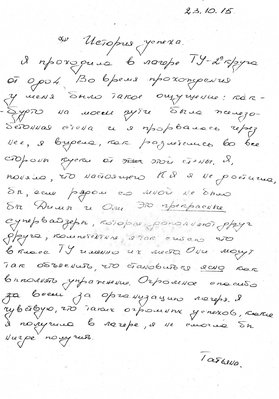 23.10.15
История успеха.
Я проходила в лагере ТУ-2 круга
от 0 до 4. Во время прохождения
у меня было такое ощущение: как-
будто на моем пути была железо-
бетонная стена и я прорвалась через
нее, я видела, как разлетались во все
стороны куски от этой стены. Я
поняла, что настоящего КЯ я не достигла
бы, если рядом со мной не было
бы Димы и Оли. Это прекрасные
супервайзеры, которые дополняют друг
друга, компетентные, я так считаю что
в классе ТУ именно их место. Они могут
так объяснить, что становиться ясно как
выполнять упражнение. Огромное спасибо
за всем за организацию лагеря. Я
чувствую, что таких огромных успехов, какие
я получила в лагере, я не смогла бы
нигде получить.
Татьяна.